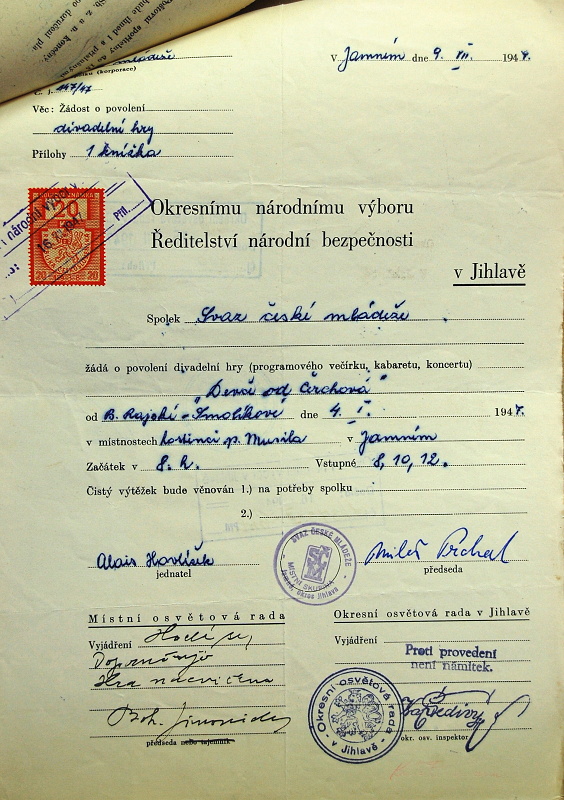 mládeže
(korporace)
Č. j. 147/47
V Jamném dne 9. VII. 1947.
Věc: Žádost o povolení
divadelní hry
Přílohy 1 knížka
20
20 20
národní
Příl.
16.
1947
Okresnímu národnímu výboru
Ředitelství národní bezpečnosti
v Jihlavě
Spolek Svaz české mládeže
žádá o povolení divadelní hry (programového večírku, kabaretu, koncertu)
"Děvče od Čerchova"
od B. Rajské-Smolíkové dne 4. I. 1947.
v místnostech hostinci p. Musila v Jamném
Začátek v 8. h. Vstupné 8, 10, 12.
Čistý výtěžek bude věnován 1.) na potřeby spolku
2.)
Alois Havlíšek
jednatel
SVAZ ČESKÉ MLÁDEŽE
MÍSTNÍ SKUPINA
okres Jihlava
Miloš Prchal
předseda
Místní osvětová rada
Vyjádření
Doporučuje
Hra nacvičena
Boh.
předseda nebo tajemník
Okresní osvětová rada v Jihlavě
Vyjádření
Proti provedení
není námitek.
Okresní osvětová rada
v Jihlavě
okr. osv. inspektor